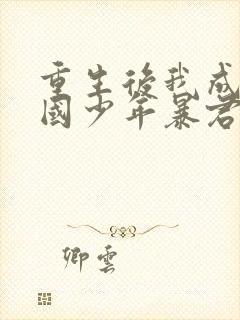 重生後我成
國少年暴君
卿雲